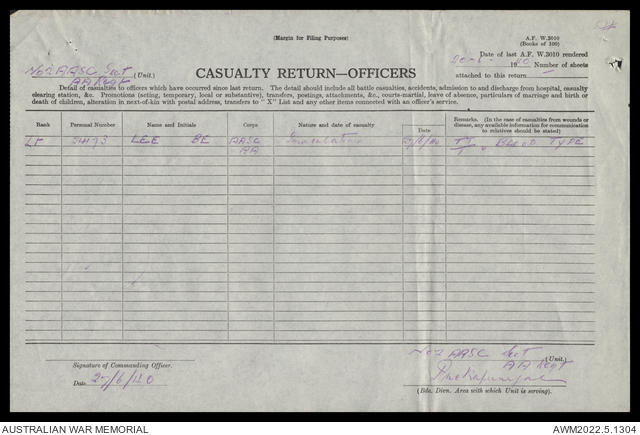 (Margin for Filing Purposes)
A.F. W.3010
(Books of 100)
Date of last A.F. W.3010 rendered
20-6- 1940 Number of sheets
attached to this return
No 2 AASC Sect (Unit.)
AA Regt
CASUALTY RETURN—OFFICERS
Detail of casualties to officers which have occurred since last return. The detail should include all battle casualties, accidents, admission to and discharge from hospital, casualty
clearing station, &c. Promotions (acting, temporary, local or substantive), transfers, postings, attachments, &c., courts-martial, leave of absence, particulars of marriage and birth or
death of children, alteration in next-of-kin with postal address, transfers to "X" List and any other items connected with an officer's service.
Rank
Personal Number
Name and Initials
Corps
Nature and date of casualty
Date
Remarks. (In the case of casualties from wounds or
disease, any available information for communication
to relatives should be stated)
Lt LEE BE AASC Inoculation BLOOD TYPE
AA
Signature of Commanding Officer.
Date 27/6/40
No 2 AASC Sect (Unit.)
AA Regt
Puckapunyal
(Bde. Divn. Area with which Unit is serving).
AUSTRALIAN WAR MEMORIAL
AWM2022.5.1304